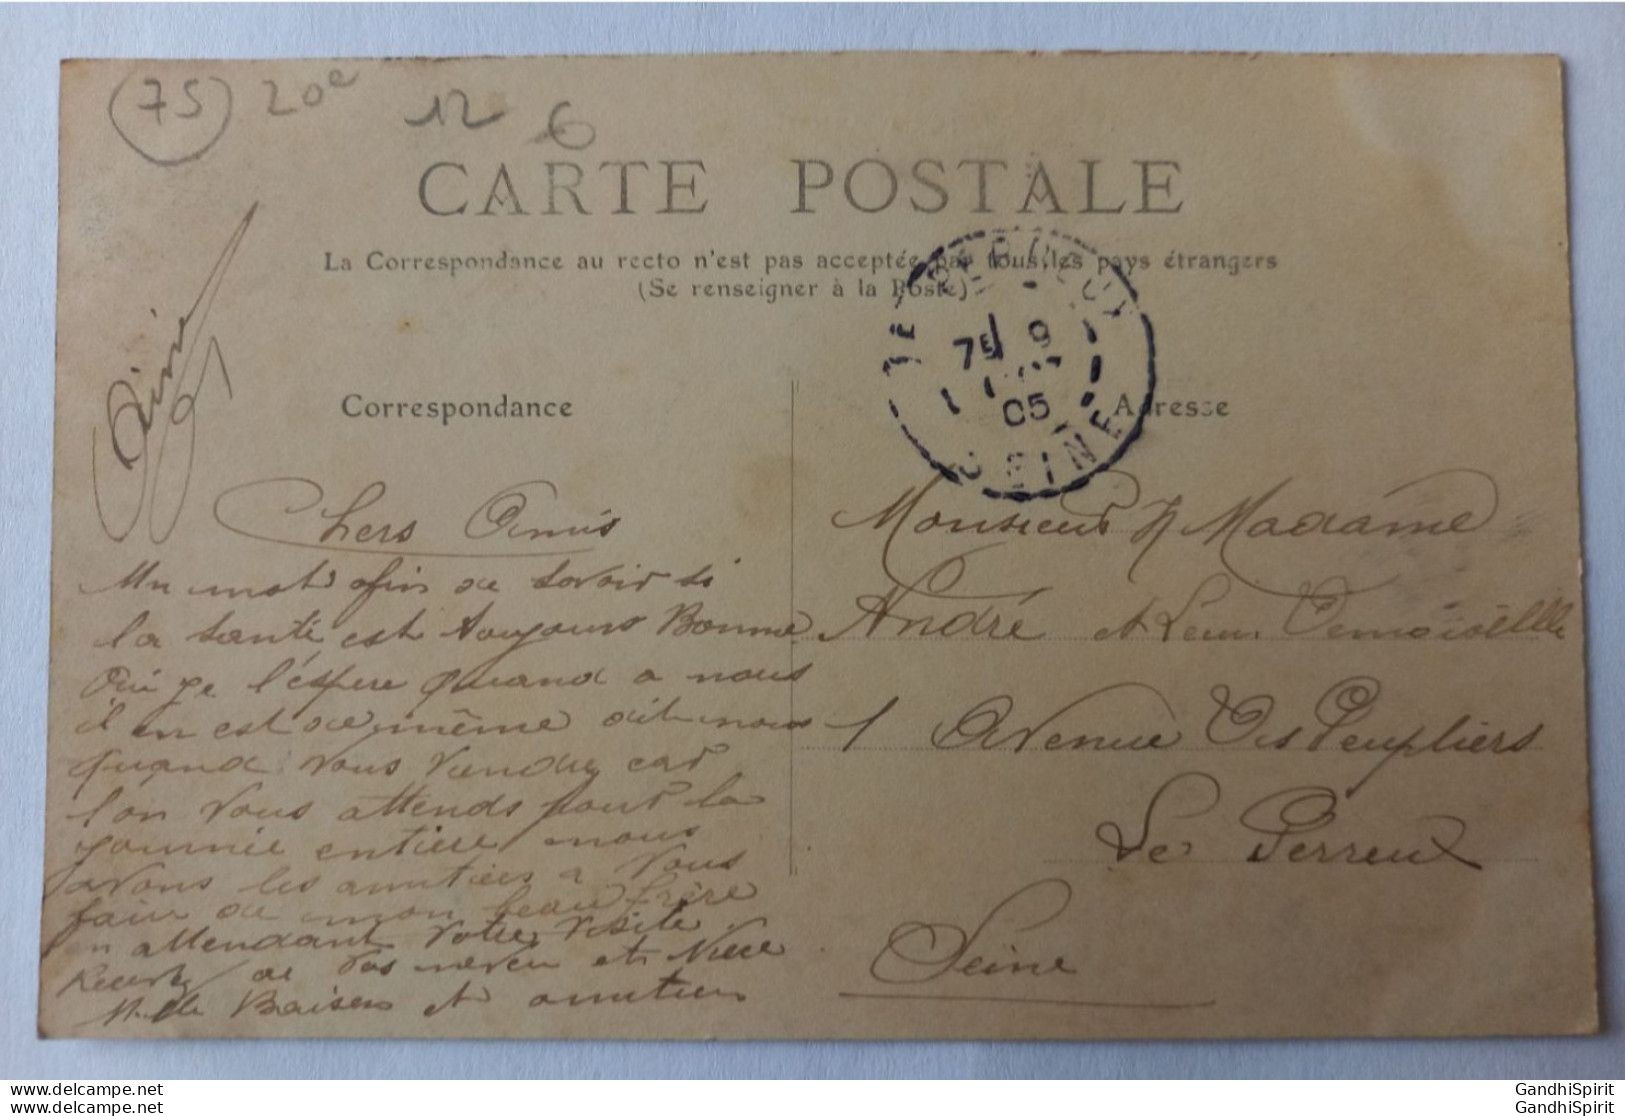 75 20e 12 6
CARTE POSTALE
La Correspondance au recto n'est pas acceptée par tous les pays étrangers
(Se renseigner à la Poste)
LE PERREUX
7E 9
05
SEINE
Correspondance
Adresse
Aimé
Chers Amis
Un mot afin de savoir si
la santé est toujours Bonne
Oui je l'éspere quand a nous
il en est de même dit nous
quand vous viendrez car
l'on vous attends pour la
journée entière nous
avons les amitiées a vous
faire de mon beau frère
en attendant votre visite
Recevez de vos neveu et Niece
Mille Baisers et amitiers
Monsieur & Madame
André et Leur Demoisëlle
1 Avenue Des Peupliers
Le Perreux
Seine
www.delcampe.net
www.delcampe.net
GandhiSpirit
GandhiSpirit